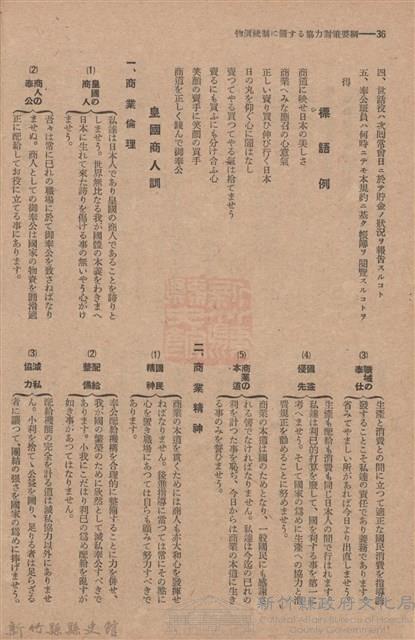 物價統制に關する協力對策要綱——36
四、世話役ハ次回常會日ニ於テ貯金ノ狀況ヲ報告スルコト
五、奉公班員ハ何時ニテモ本規約ニ基ク帳簿ヲ閱覽スルコトヲ
得
標語例
商道に映せ日本の美しさ
商業へみな應召の心意氣
正しい賣り買ひ伸び行く日本
日の丸を仰ぐ心に闇はなし
賣つてやる買つてやる氣は捨てませう
賣るにも買ふにも分け合ふ心
笑顏の賣手に笑顏の買手
商道を正しく踐んで御奉公
皇國商人訓
一、商業倫理
(1) 皇國の商人
私達は日本人であり皇國の商人であることを誇りと
しませう。世界無比なる我が國體の本義をわきまへ
日本に生れて來た誇りを傷ける事の無いやう心がけ
ませう。
(2) 商人の奉公
吾々は常に日々の職場に於て御奉公を致さねばなり
ませぬ。商人としての御奉公は國家の物資を圓滑適
正に配給してお役に立てる事にあります。
(3) 職域の奉仕
生產と消費との間に立つて適正な國民消費を指導
發することこそ私達の責任であり義務であります
省みてやましい所があれば今日より出直しませう
(4) 國益優先
生產も配給も消費も同じ日本人の間で行はれます
私達は利己的打算を排して、國を利する事を第一に
考へませう。そして國家の爲めに生產への協力と消
費規正を勸めることに努めませう。
(5) 商業の本道
商業の本道は國のためとなり、一般國民にも感謝
れる所でなければなりません。私達は今迄の己れの
利を計つた事を恥ぢ、今日からは商業の本道に生き
る事のみを誓ひませう。
二、商業精神
(1) 國民精神
商業の本道を貫くためには商人も亦大御心を發揮せ
ねばなりません。後進指導に當つては常にその點に
心を置き職場にあつては自らも顧みて努力すべきで
あります。
(2) 配給整備
奉公配給機構を合理的に整備することに力を併せ、
我が國の繁榮のために欣然として滅私奉公すべきで
あります。小我にこだはり利己の爲め配給を亂すが
如き事のあつてはなりません。
(3) 滅私協力
配給機能の完全を計る道は滅私協力以外にありませ
ん。小利を捨てゝ公益を圖り、足りる者は足らざる
者に讓つて、團結の强さを國家の爲めに捧げませう。
新竹縣縣史館
新竹縣政府文化局
Cultural Affairs Bureau of Hsinchu County Government